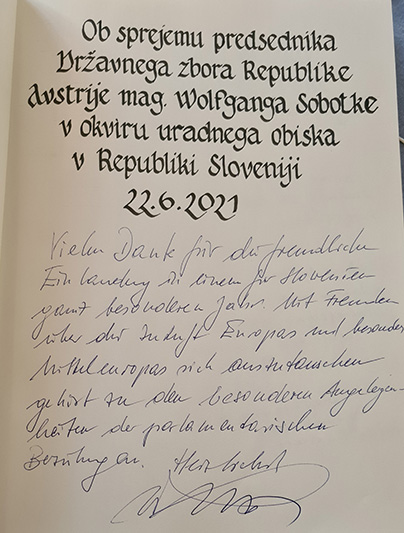 Ob sprejemu predsednika
Državnega zbora Republike
Avstrije mag. Wolfganga Sobotke
v okviru uradnega obiska
v Republiki Sloveniji
22.6.2021
Vielen Dank für die freundliche
Einladung in einem für Slowenien
ganz besonderen Jahr. Mit Freunden
über die Zukunft Europas und besonders
Mitteleuropas sich auszutauschen
gehört zu den besonderen Angelegen-
heiten der parlamentarischen
Herzlichst